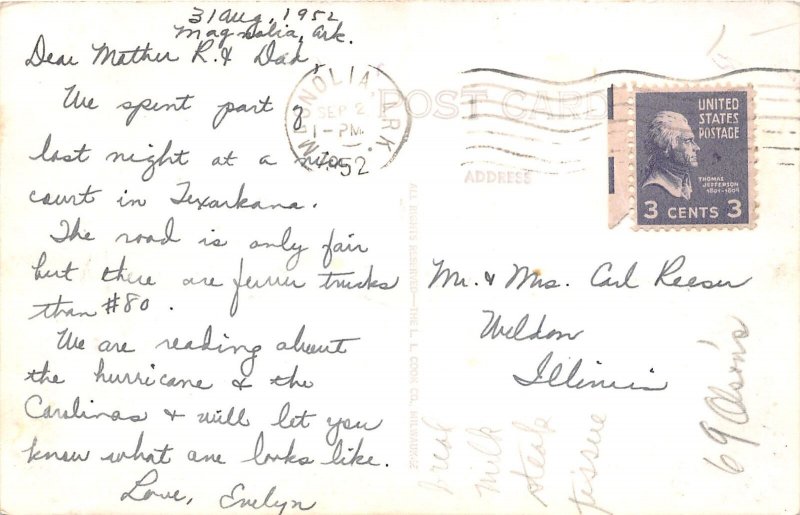 31 Aug, 1952
Magnolia, Ark.
Dear Mother R. & Dad,
We spent part of
last night at a nice
court in Texarkana.
The road is only fair
but there are fewer trucks
than #80.
We are reading about
the hurricane & the
Carolinas & will let you
know what one looks like.
Love, Evelyn
MAGNOLIA, ARK.
SEP 2
1-PM
1952
POST CARD
ADDRESS
UNITED
STATES
POSTAGE
THOMAS
JEFFERSON
1801-1809
3 CENTS 3
Mr. & Mrs. Carl Reeser
Weldon
Illinois
ALL RIGHTS RESERVED—THE L. L. COOK CO., MILWAUKEE
milk
steak
tissue
69 Olson's